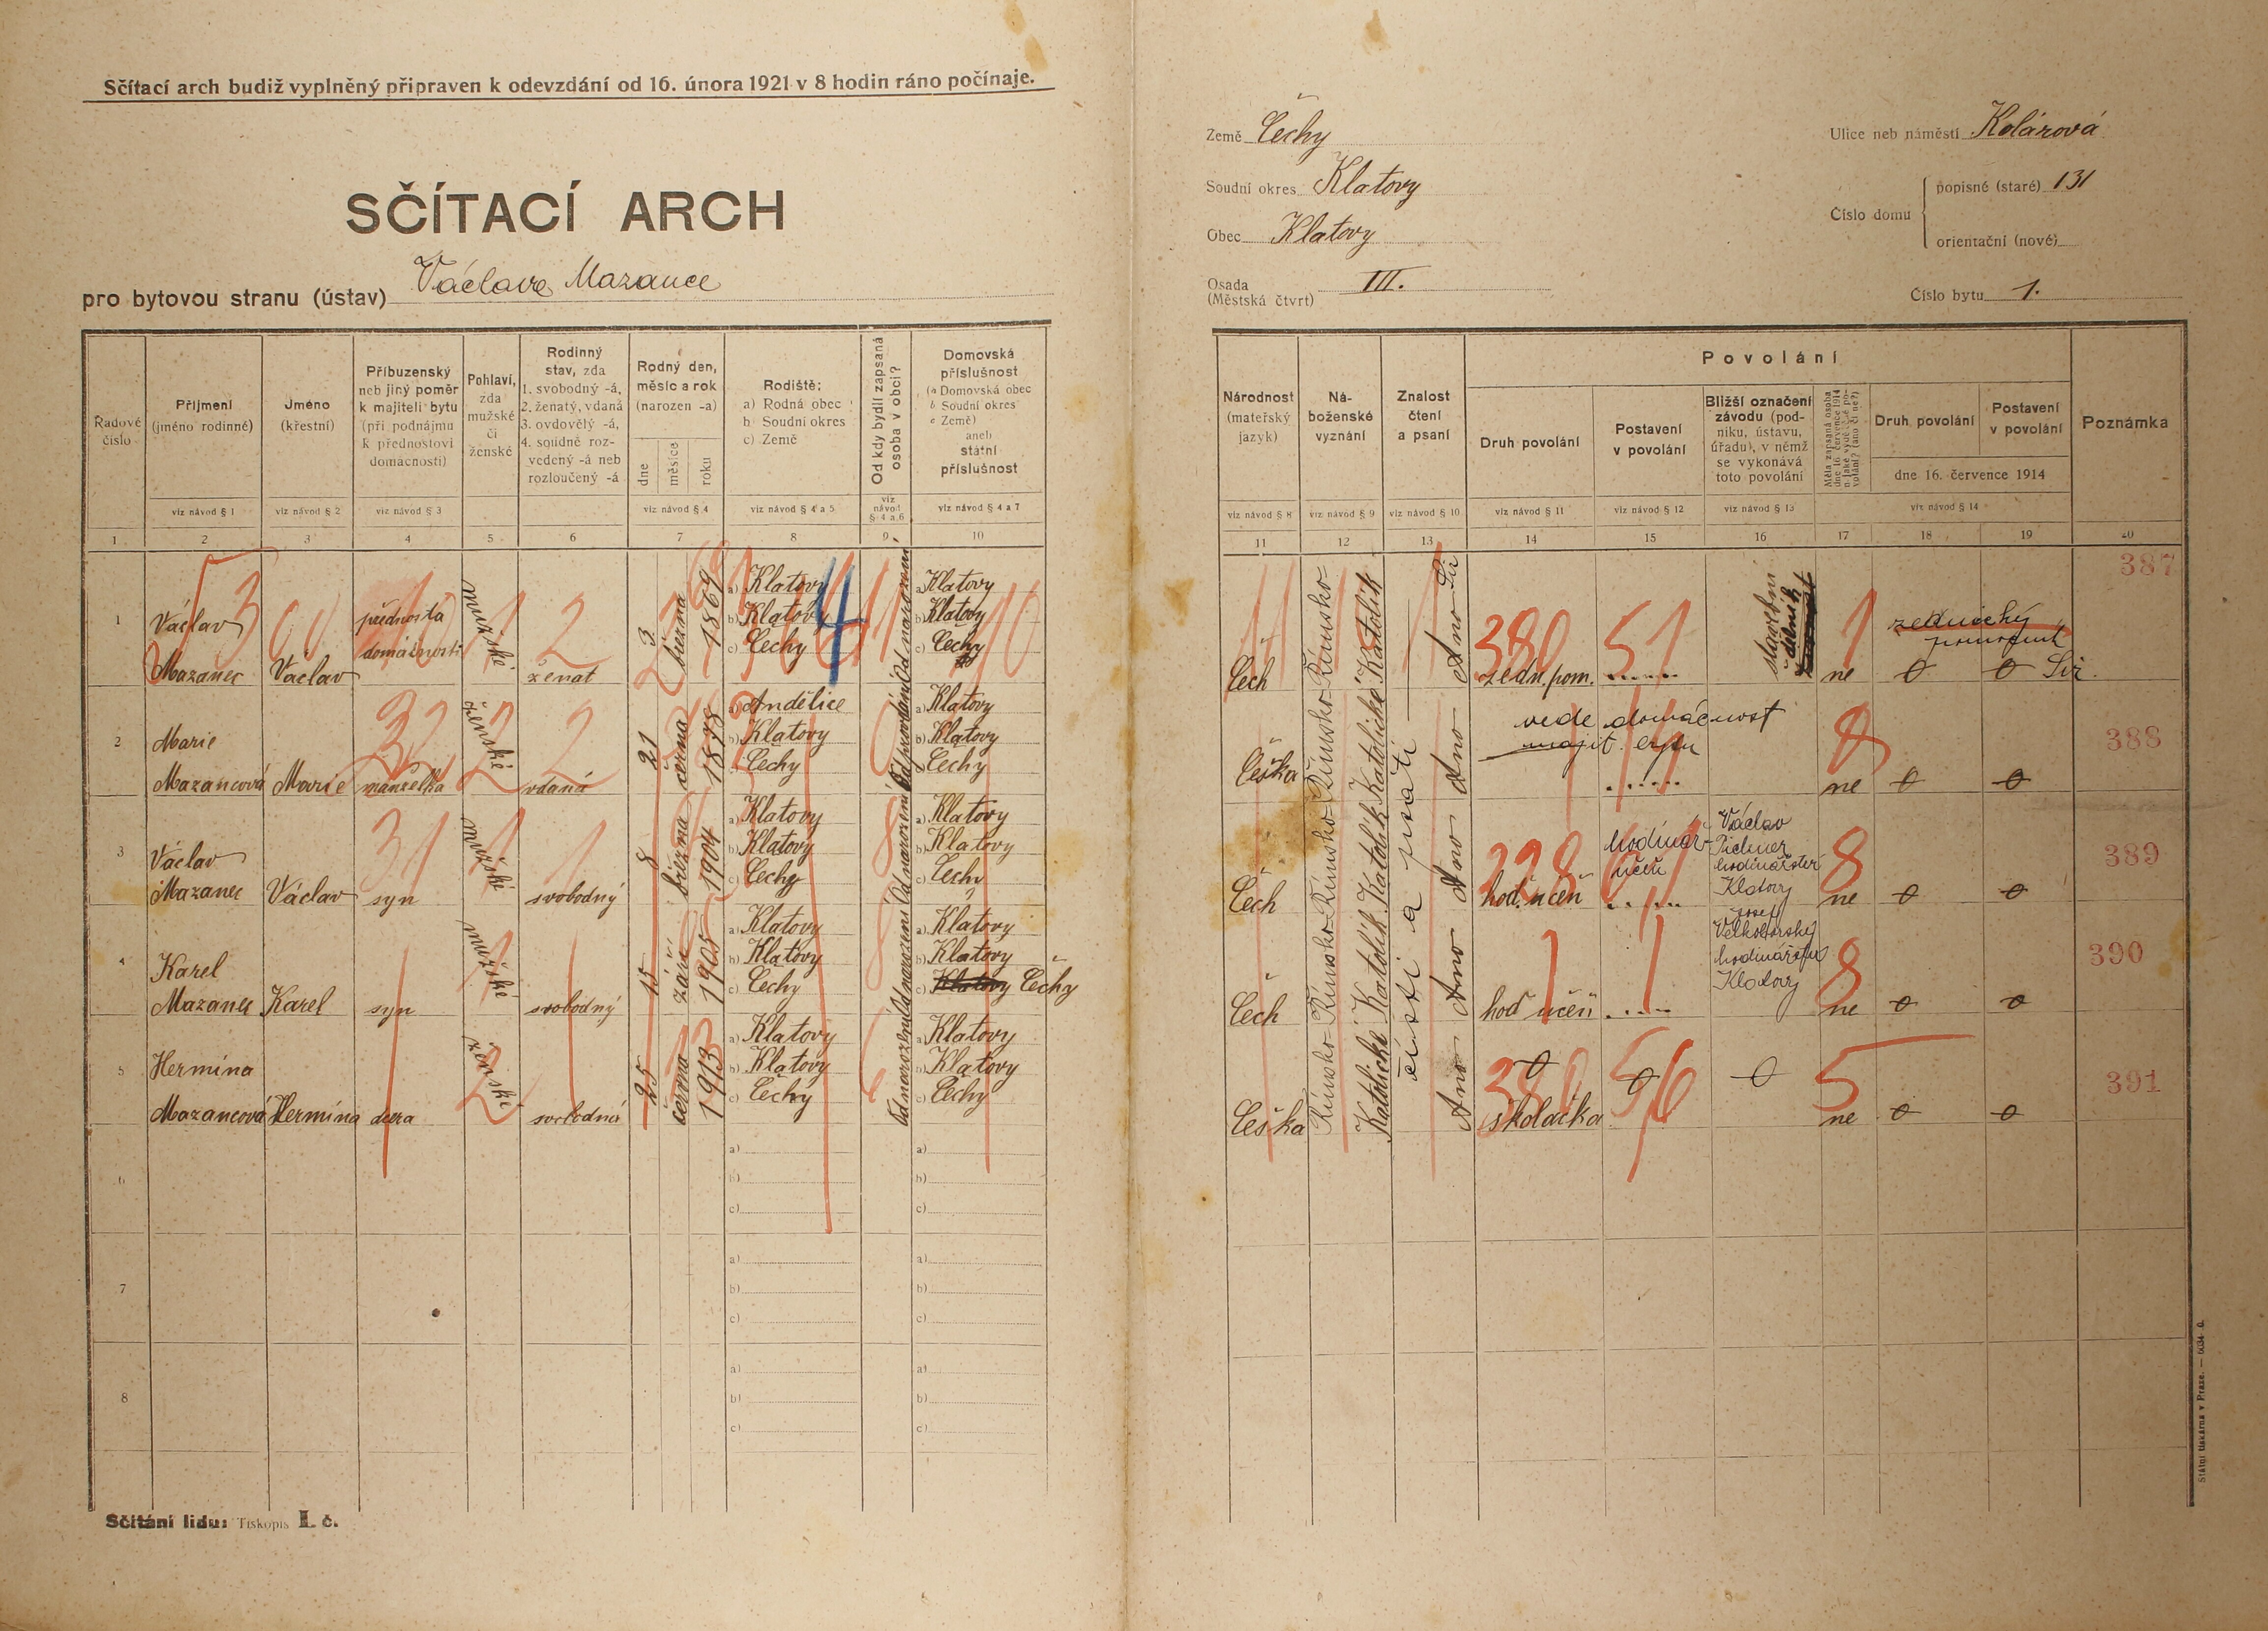 Sčítací arch budiž vyplněný připraven k odevzdání od 16. února 1921 v 8 hodin ráno počínaje.
SČÍTACÍ ARCH
pro bytovou stranu (ústav) Václava Mazance
Země Čechy
Soudní okres Klatovy
Obec Klatovy
Osada
(Městská čtvrt) III.
Ulice neb náměstí Kolárová
Číslo domu
popisné (staré) 131
orientační (nové)
Číslo bytu 1.
Řadové číslo
Příjmení
(jméno rodinné)
Jméno
(křestní)
Příbuzenský
neb jiný poměr
k majiteli bytu
(při podnájmu
k přednostovi
domácnosti)
Pohlaví,
zda
mužské
či
ženské
Rodinný
stav, zda
1. svobodný -á,
2. ženatý, vdaná
3. ovdovělý -á,
4. soudně roz-
vedený -á neb
rozloučený -á
Rodný den,
měsíc a rok
(narozen -a)
dne
měsíce
roku
Rodiště:
a) Rodná obec
b) Soudní okres
c) Země
Od kdy bydlí zapsaná
osoba v obci?
Domovská
příslušnost
(a Domovská obec
b Soudní okres
c Země)
aneb
státní
příslušnost
viz návod § 1
viz návod § 2
viz návod § 3
viz návod § 4
viz návod § 4 a 5
viz
návod
§ 4 a 6
viz návod § 4 a 7
1 2 3 4 5 6 7 8 9 10
Národnost
(mateřský
jazyk)
Ná-
boženské
vyznání
Znalost
čtení
a psaní
Povolání
Druh povolání
Postavení
v povolání
Bližší označení
závodu (pod-
niku, ústavu,
úřadu), v němž
se vykonává
toto povolání
Měla zapsaná osoba
dne 16. července 1914
nějaké výdělečné po-
volání? (ano či ne?)
Druh povolání
Postavení
v povolání
dne 16. července 1914
Poznámka
viz návod § 8
viz návod § 9
viz návod § 10
viz návod § 11
viz návod § 12
viz návod § 13
viz návod § 14
11 12 13 14 15 16 17 18 19 20
1
Václav
Mazanec
Václav
přednosta
domácnosti
mužské
ženat
3.
března
1869
a) Klatovy
b) Klatovy
c) Čechy
4
Od narození
a) Klatovy
b) Klatovy
c) Čechy
Čech
Římsko-
Katolík
Ano
380
zedn. pom.
51
stavební
dělník
1
ne
zednický
pomocník
0
0
387
2
Marie
Mazancová
Marie
32
manželka
ženské
2
2
vdaná
21
června
1878
a) Andělice
b) Klatovy
c) Čechy
a) Klatovy
b) Klatovy
c) Čechy
Češka
Římsko-
Katolické
čísti a psáti
Ano
vede domácnost
ne
0
0
388
3
Václav
Mazanec
Václav
31
syn
mužské
1
1
svobodný
8
března
1904
a) Klatovy
b) Klatovy
c) Čechy
Od narození
a) Klatovy
b) Klatovy
c) Čechy
Čech
Římsko-
Katolík
Ano
328
hod. učeň
hodinář
učeň
Václav
hodinářství
Klatovy
8
ne
0
0
389
4
Karel
Mazanec
Karel
syn
mužské
svobodný
15
září
1905
a) Klatovy
b) Klatovy
c) Čechy
Od narození
a) Klatovy
b) Klatovy
c) Klatovy Čechy
Čech
Římsko-
Katolík
Ano
hod učeň
Josef
Velkoborský
hodinářství
Klatovy
8
ne
0
0
390
5
Hermína
Mazancová
Hermína
dcera
ženské
2
svobodná
25
června
1913
a) Klatovy
b) Klatovy
c) Čechy
Od narození
a) Klatovy
b) Klatovy
c) Čechy
Češka
Římsko-
Katolické
Ano
0
380
školačka
0
56
0
5
ne
0
0
391
6
a)
b)
c)
a)
b)
c)
7
a)
b)
c)
a)
b)
c)
8
a)
b)
c)
a)
b)
c)
Sčítání lidu: Tiskopis I. č.
Státní tiskárna v Praze. — 6034-0.